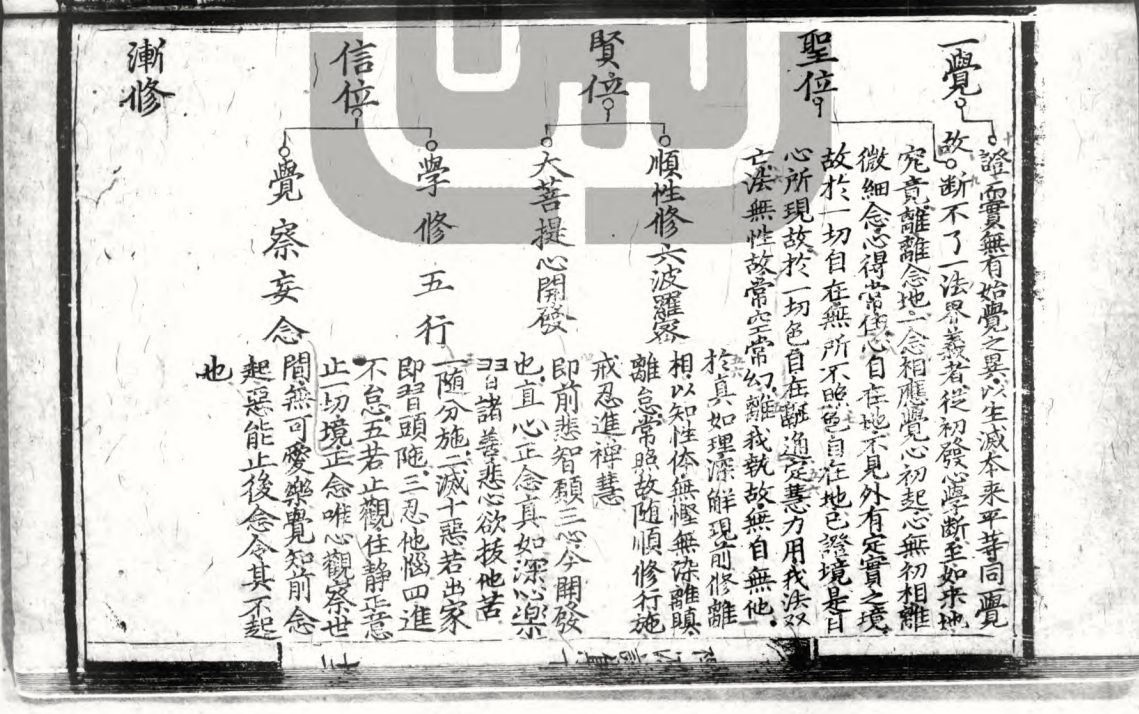 一覺
證實無有始覺之異以生滅本來平等同一覺
故斷不了一法界義者從初發心學斷至如來地
究竟離離念地一念相應覺心初起心無初相離
微細念心得常住心自在地不見外有定實之境
故於一切自在無所不照色自在地已證境是自
心所現故於一切色自在融通定慧力用我法双
亡法無性故常空常幻離我執故無自無他
聖位
賢位
順性修六波羅密
於真如理深解現前修離
相以知性体無慳無染離瞋
離怠常照故随順修行施
戒忍進禪慧
大菩提心開發
即前悲智願三心今開發
也直心正念真如深心樂
習諸善悲心欲拔他苦
信位
學修五行
一随分施二滅十惡若出家
即習頭陁三忍他惱四進
不怠五若止觀住静正意
止一切境正念唯心觀察世
覺察妄念
間無可愛樂覺知前念
起惡能止後念令其不起
也
漸修
十二